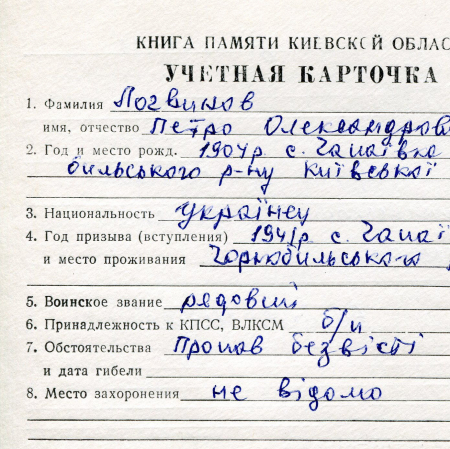 КНИГА ПАМЯТИ КИЕВСКОЙ ОБЛАС
УЧЕТНАЯ КАРТОЧКА
1. Фамилия Логвинов
имя, отчество Петро Олександров
2. Год и место рожд. 1904р с. Чапаївка
бильського р-ну Київської
3. Национальность українец
4. Год призыва (вступления) 1941р с. Чапаї
и место проживания Чорнобильського
5. Воинское звание рядовий
6. Принадлежность к КПСС, ВЛКСМ б/п
7. Обстоятельства Пропав безвісті
и дата гибели
8. Место захоронения не відомо